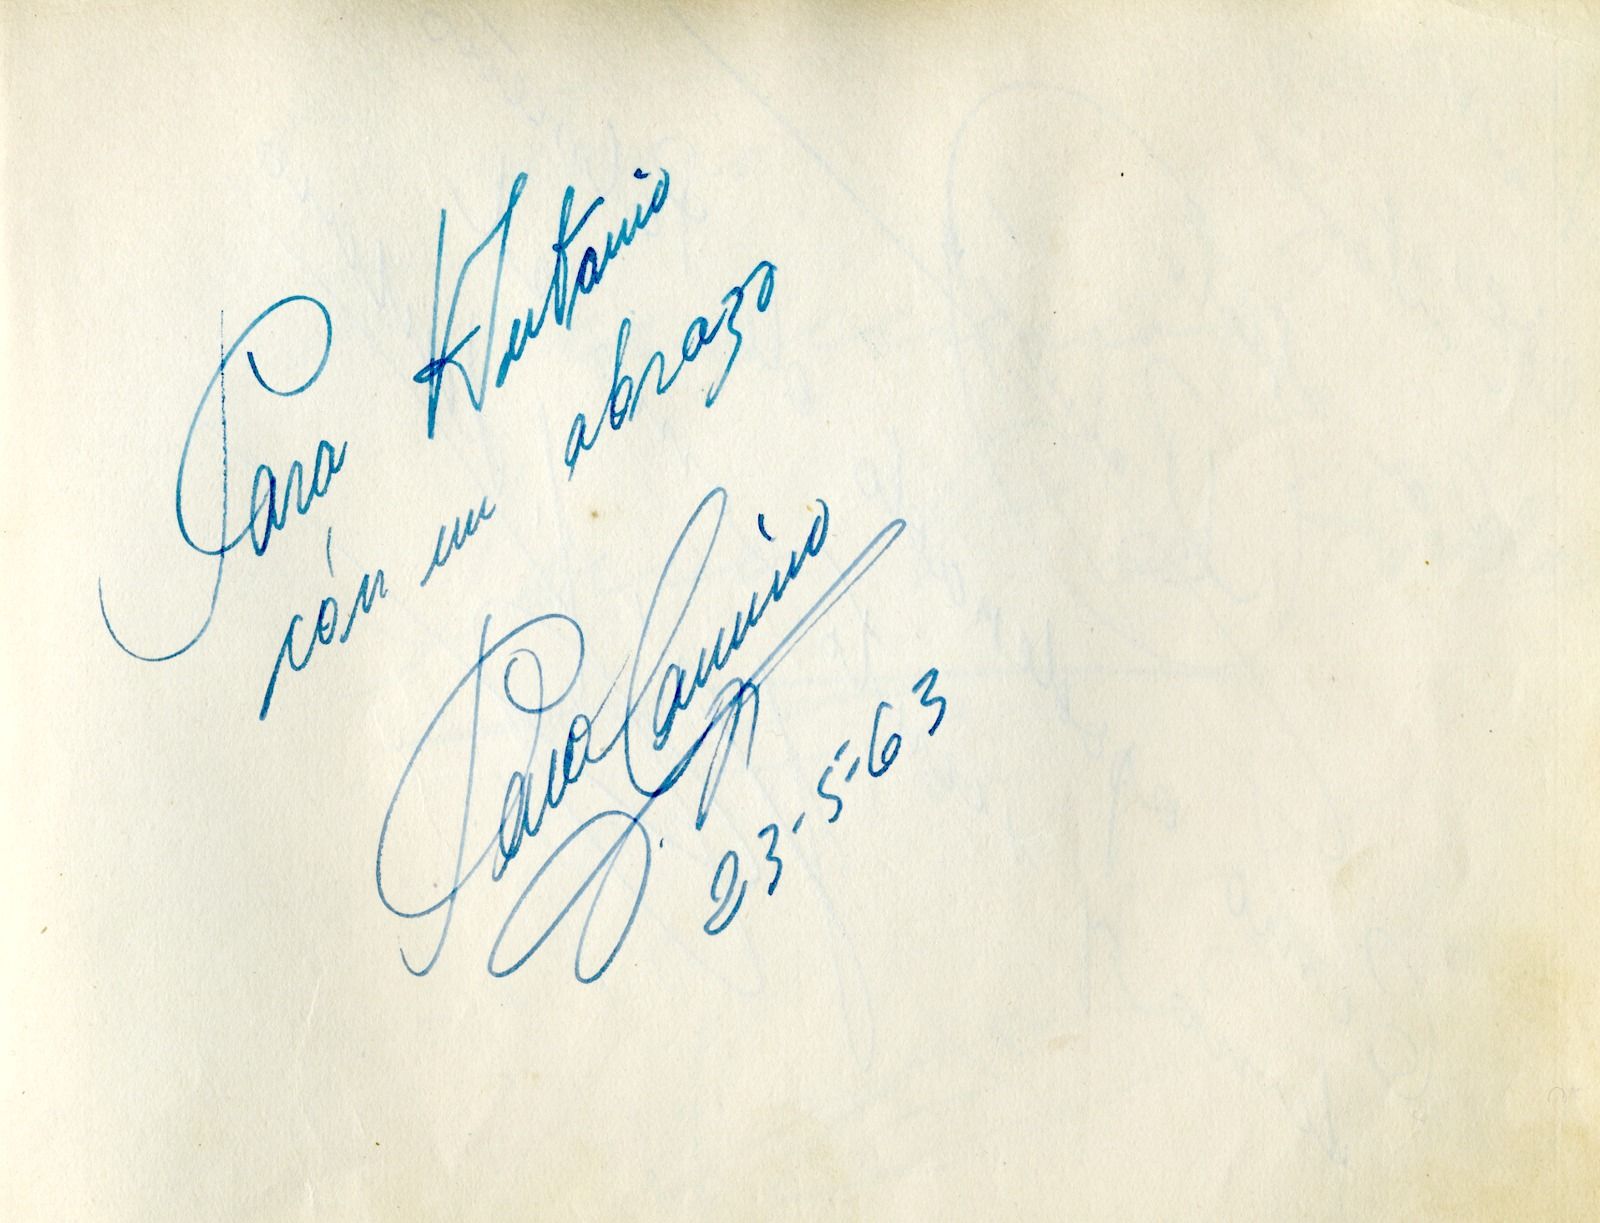 Para Antonio
con un abrazo
Paco Camino
23-5-63